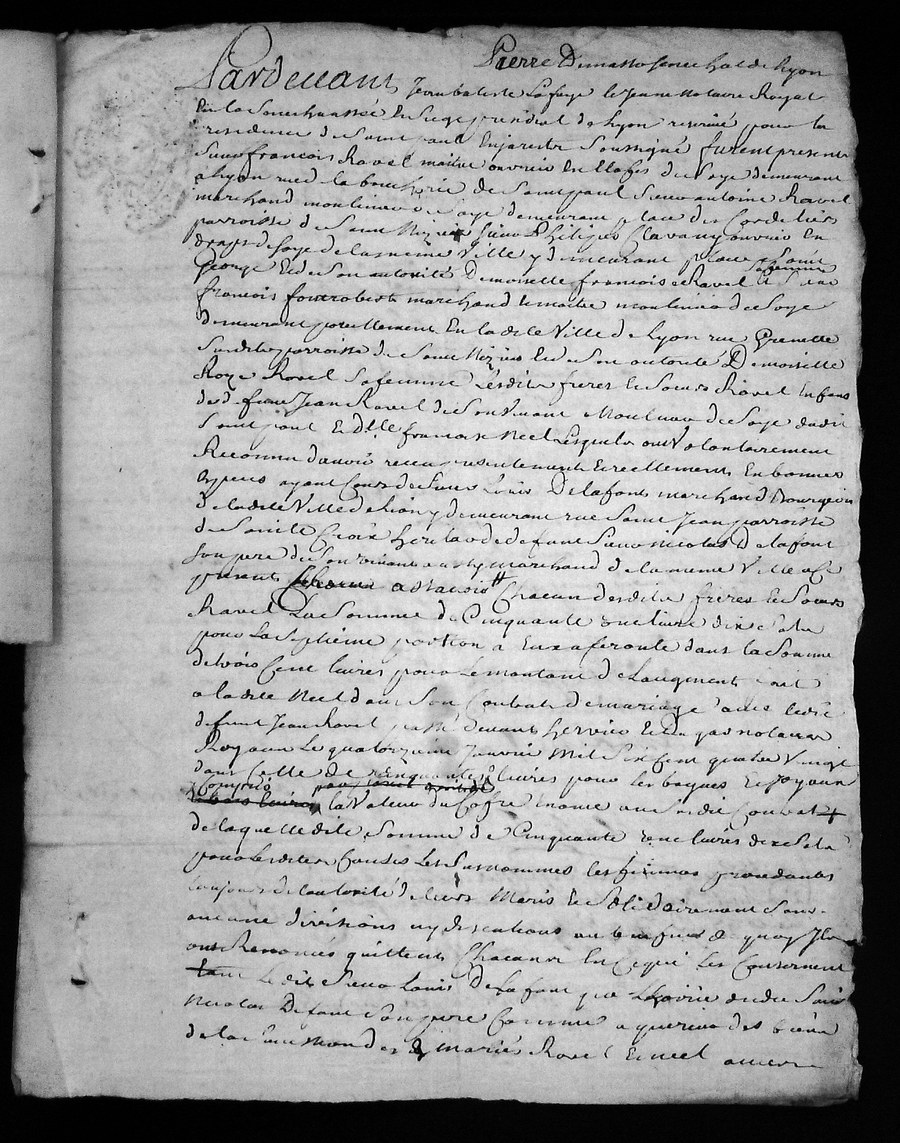 Pierre Dumasso senechal de Lyon
Pardevant Jean batiste Lafaye le Jeune Notaire Royal
En la Senechaussée Et Siege presidial de Lyon reservé pour la
residence de Saint paul En Jarest Soussigné furent presents
Sieur francois Ravel maitre ouvrier En Etofes de Soye demeurant
a Lyon rue de la boucherie de Saint paul Sieur antoine Ravel
marchand moulinier de Soye demeurant place des Cordeliers
parroisse de Saint Nizier Sieur Philipes Clavany ouvrier En
draps de Soye de la meme Ville y demeurant place Saint
George Et de Son autorité Demoiselle francoise Ravel Sa femme Et Sieur
francois fontrobert marchand Et maitre moulinier de Soye
demeurant pareillement En la dite Ville de Lyon rue Grenette
Sus dite parroisse de Saint Nizier Et de Son autorité Demoiselle
Ravel Sa femme Lesdits freres Et Soeurs Ravel Enfans
de defunt Jean Ravel de Son Vivant Moulinier de Soye dudit
Saint paul Et de francoise Neel Lesquels ont Volontairement
Reconnu d'avoir receu presentement Et reellement En bonnes
Especes ayant Cours de Sieur Louis Delafont marchand Bourgeois
de la dite Ville de Lion y demeurant rue Saint Jean parroisse
de Sainte Croix heritier de defunt Sieur Nicolas Delafont
Son pere de Son vivant aussy marchand de la meme Ville a Ce
present Chacun desdits freres Et Soeurs
Ravel La Somme de Cinquante une livre dix Sols
pour La Septieme portion a Eux aferante dans la Somme
de trois Cent livres pour Le montant de Laugment fait
a la dite Neel dans Son Contrat de mariage avec Ledit
defunt Jean Ravel passé devant hervier Et Dugas notaires
Royaux Le quatorzieme Janvier Mil Six Cent quatre Vingt
dans Celle de Cinquante livres pour les bagues Et Joyaux
Compris la Valeur du Cofre Enoncé au Susdit Contrat
de laquelle dite Somme de Cinquante une livres dix Sols
pour Lesdites Causes Les Surnommés les femmes procedantes
toujours de lautorité de leurs Maris Et Solidairement Sans
aucune division ny discution au benefice de quoy Ils
ont Renoncés quittent Chacun En Ce qui Les Concernent
Ledit Sieur Louis Delafont que Lhoirie dudit Sieur
Nicolas Delafont Son pere Comme aquereur des biens
de la Succession des mariés Ravel Et Neel avec